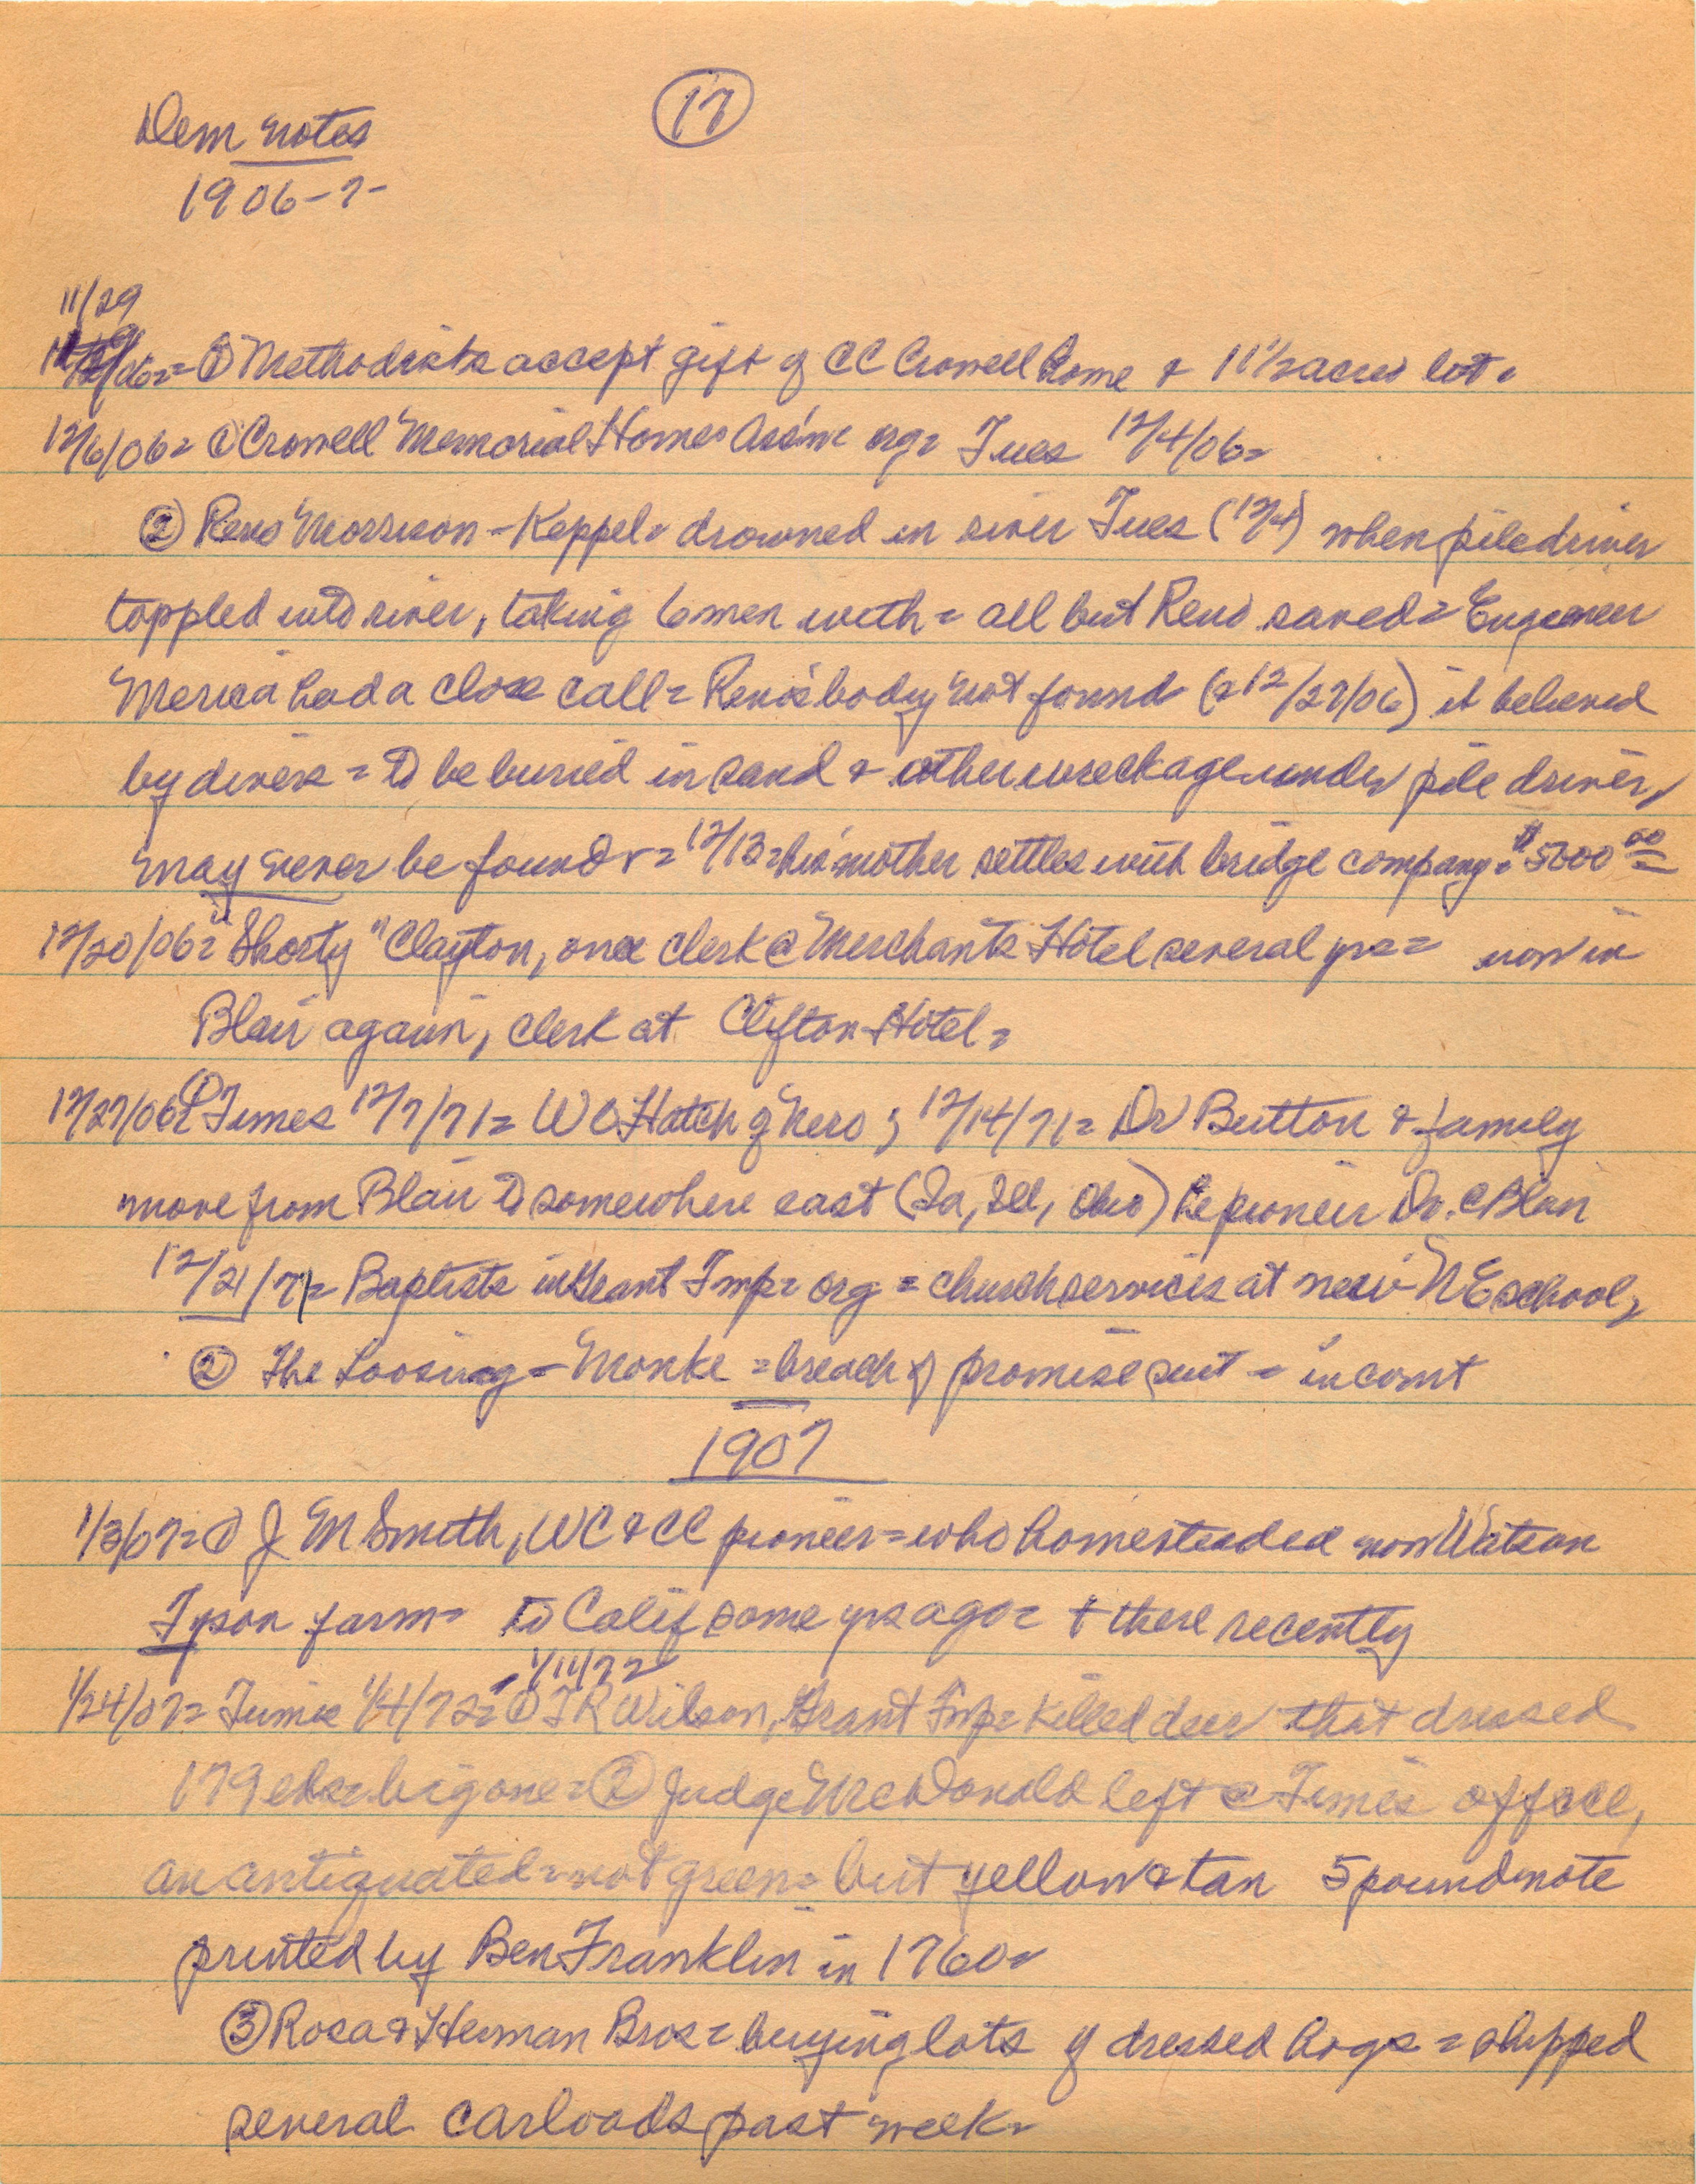 17
Dem notes
1906-7-
11/29
/06= ① Methodists accept gift of CC Crowell home & 11 1/2 acres lot =
12/6/06= ① Crowell Memorial Home Ass'n org= Tues 12/4/06=
② Reno Morrison - Keppel = drowned in river Tues (12/4) when piledriver
toppled into river, taking 6 men with = all but Reno saved = Engineer
Merica had a close call = Reno's body not found (= 12/27/06) it believed
by divers = to be buried in sand & other wreckage under pile driver,
may never be found = 12/13 = his mother settles with bridge company = $5000 00
12/20/06= "Shorty" Clayton, once clerk @ Merchants Hotel several yrs = now in
Blair again, clerk at Clifton Hotel =
12/27/06= ① Times 12/7/71= WC Hatch of hero ; 12/14/71= Dr Button & family
move from Blair to somewhere east (Ia, Ill, Ohio) he pioneer Dr. @ Blair
12/21/71= Baptists in Grant Twp= org = church services at new NE school,
② The Loosing - Monke = breach of promise suit = in court
1907
1/3/07= ① J M Smith, WC & CC pioneer = who homesteaded now Watson
Tyson farm = to Calif some yrs ago = † there recently
1/11/72
1/24/07= Times 1/4/72= ① T R Wilson, Grant Twp= killed deer that dressed
179 lbs= big one = ② Judge McDonald left @ Times office,
an antiquated = not green = but yellow & tan 5 pound note
printed by Ben Franklin in 1760=
③ Rosa & Herman Bros = buying lots of dressed hogs = shipped
several carloads past week=